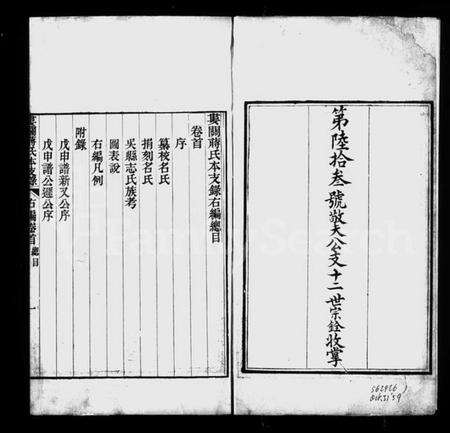 第陸拾叁號敬大公支十二世宗銓收掌
婁關蔣氏本支錄右編總目
卷首
序
纂校名氏
捐刻名氏
吳縣志氏族考
圖表說
右編凡例
附錄
戊申譜新又公序
戊申譜公遜公序
婁關蔣氏本支錄 右編卷首 總目
FamilySearch